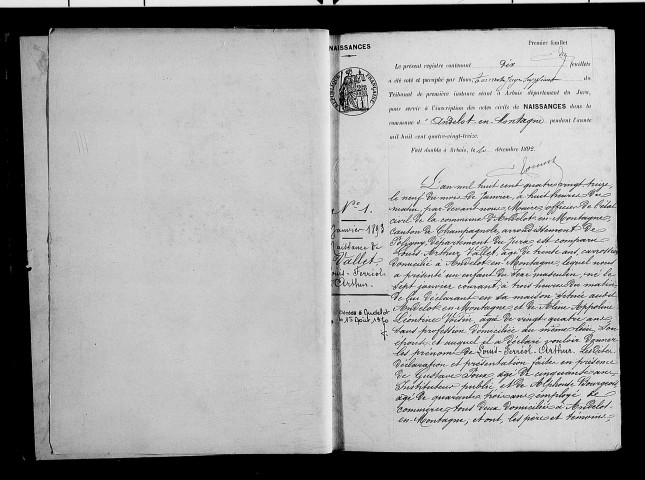 NAISSANCES
Premier feuillet
Le présent registre contenant dix feuillets
a été coté et paraphé par Nous, Juge suppléant du
Tribunal de première instance séant à Arbois département du Jura,
pour servir à l'inscription des actes civils de NAISSANCES dans la
commune d'Andelot-en-Montagne pendant l'année
mil huit cent quatre-vingt-treize.
Fait double à Arbois, le décembre 1892.
RÉPUBLIQUE FRANÇAISE
N° 1.
Janvier 1893
Naissance de
Vallet
Louis-Ferréol-
Arthur.
L'an mil huit cent quatre vingt treize,
le neuf du mois de Janvier, à huit heures du
matin, par devant nous, Maire, officier de l'état
civil de la commune d'Andelot-en-Montagne,
canton de Champagnole, arrondissement de
Poligny, département du Jura est comparu
Louis Arthur Vallet, âgé de trente ans,
domicilié à Andelot-en-Montagne, lequel nous
a présenté un enfant du sexe masculin, né le
sept janvier courant, à trois heures du matin
de lui déclarant en sa maison située audit
Andelot-en-Montagne et de Appoline
Léontine Voisin, âgée de vingt quatre ans
sans profession domiciliée au même lieu son
épouse et auquel il a déclaré vouloir donner
les prénoms de Louis-Ferréol-Arthur. Lesdites
déclaration et présentation faites en présence
de Gustave Roux âgé de cinquante ans
Instituteur public et de Alphonse Bourgeois
âgé de quarante trois ans employé de
commerce tous deux domiciliés à Andelot-
en-Montagne, et ont, les père et témoins